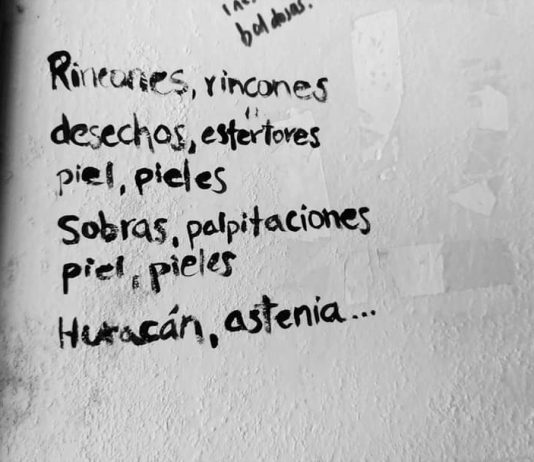 baldosas.
Rincones, rincones
desechos, estertores
piel, pieles
Sobras, palpitaciones
piel, pieles
Huracán, astenia...